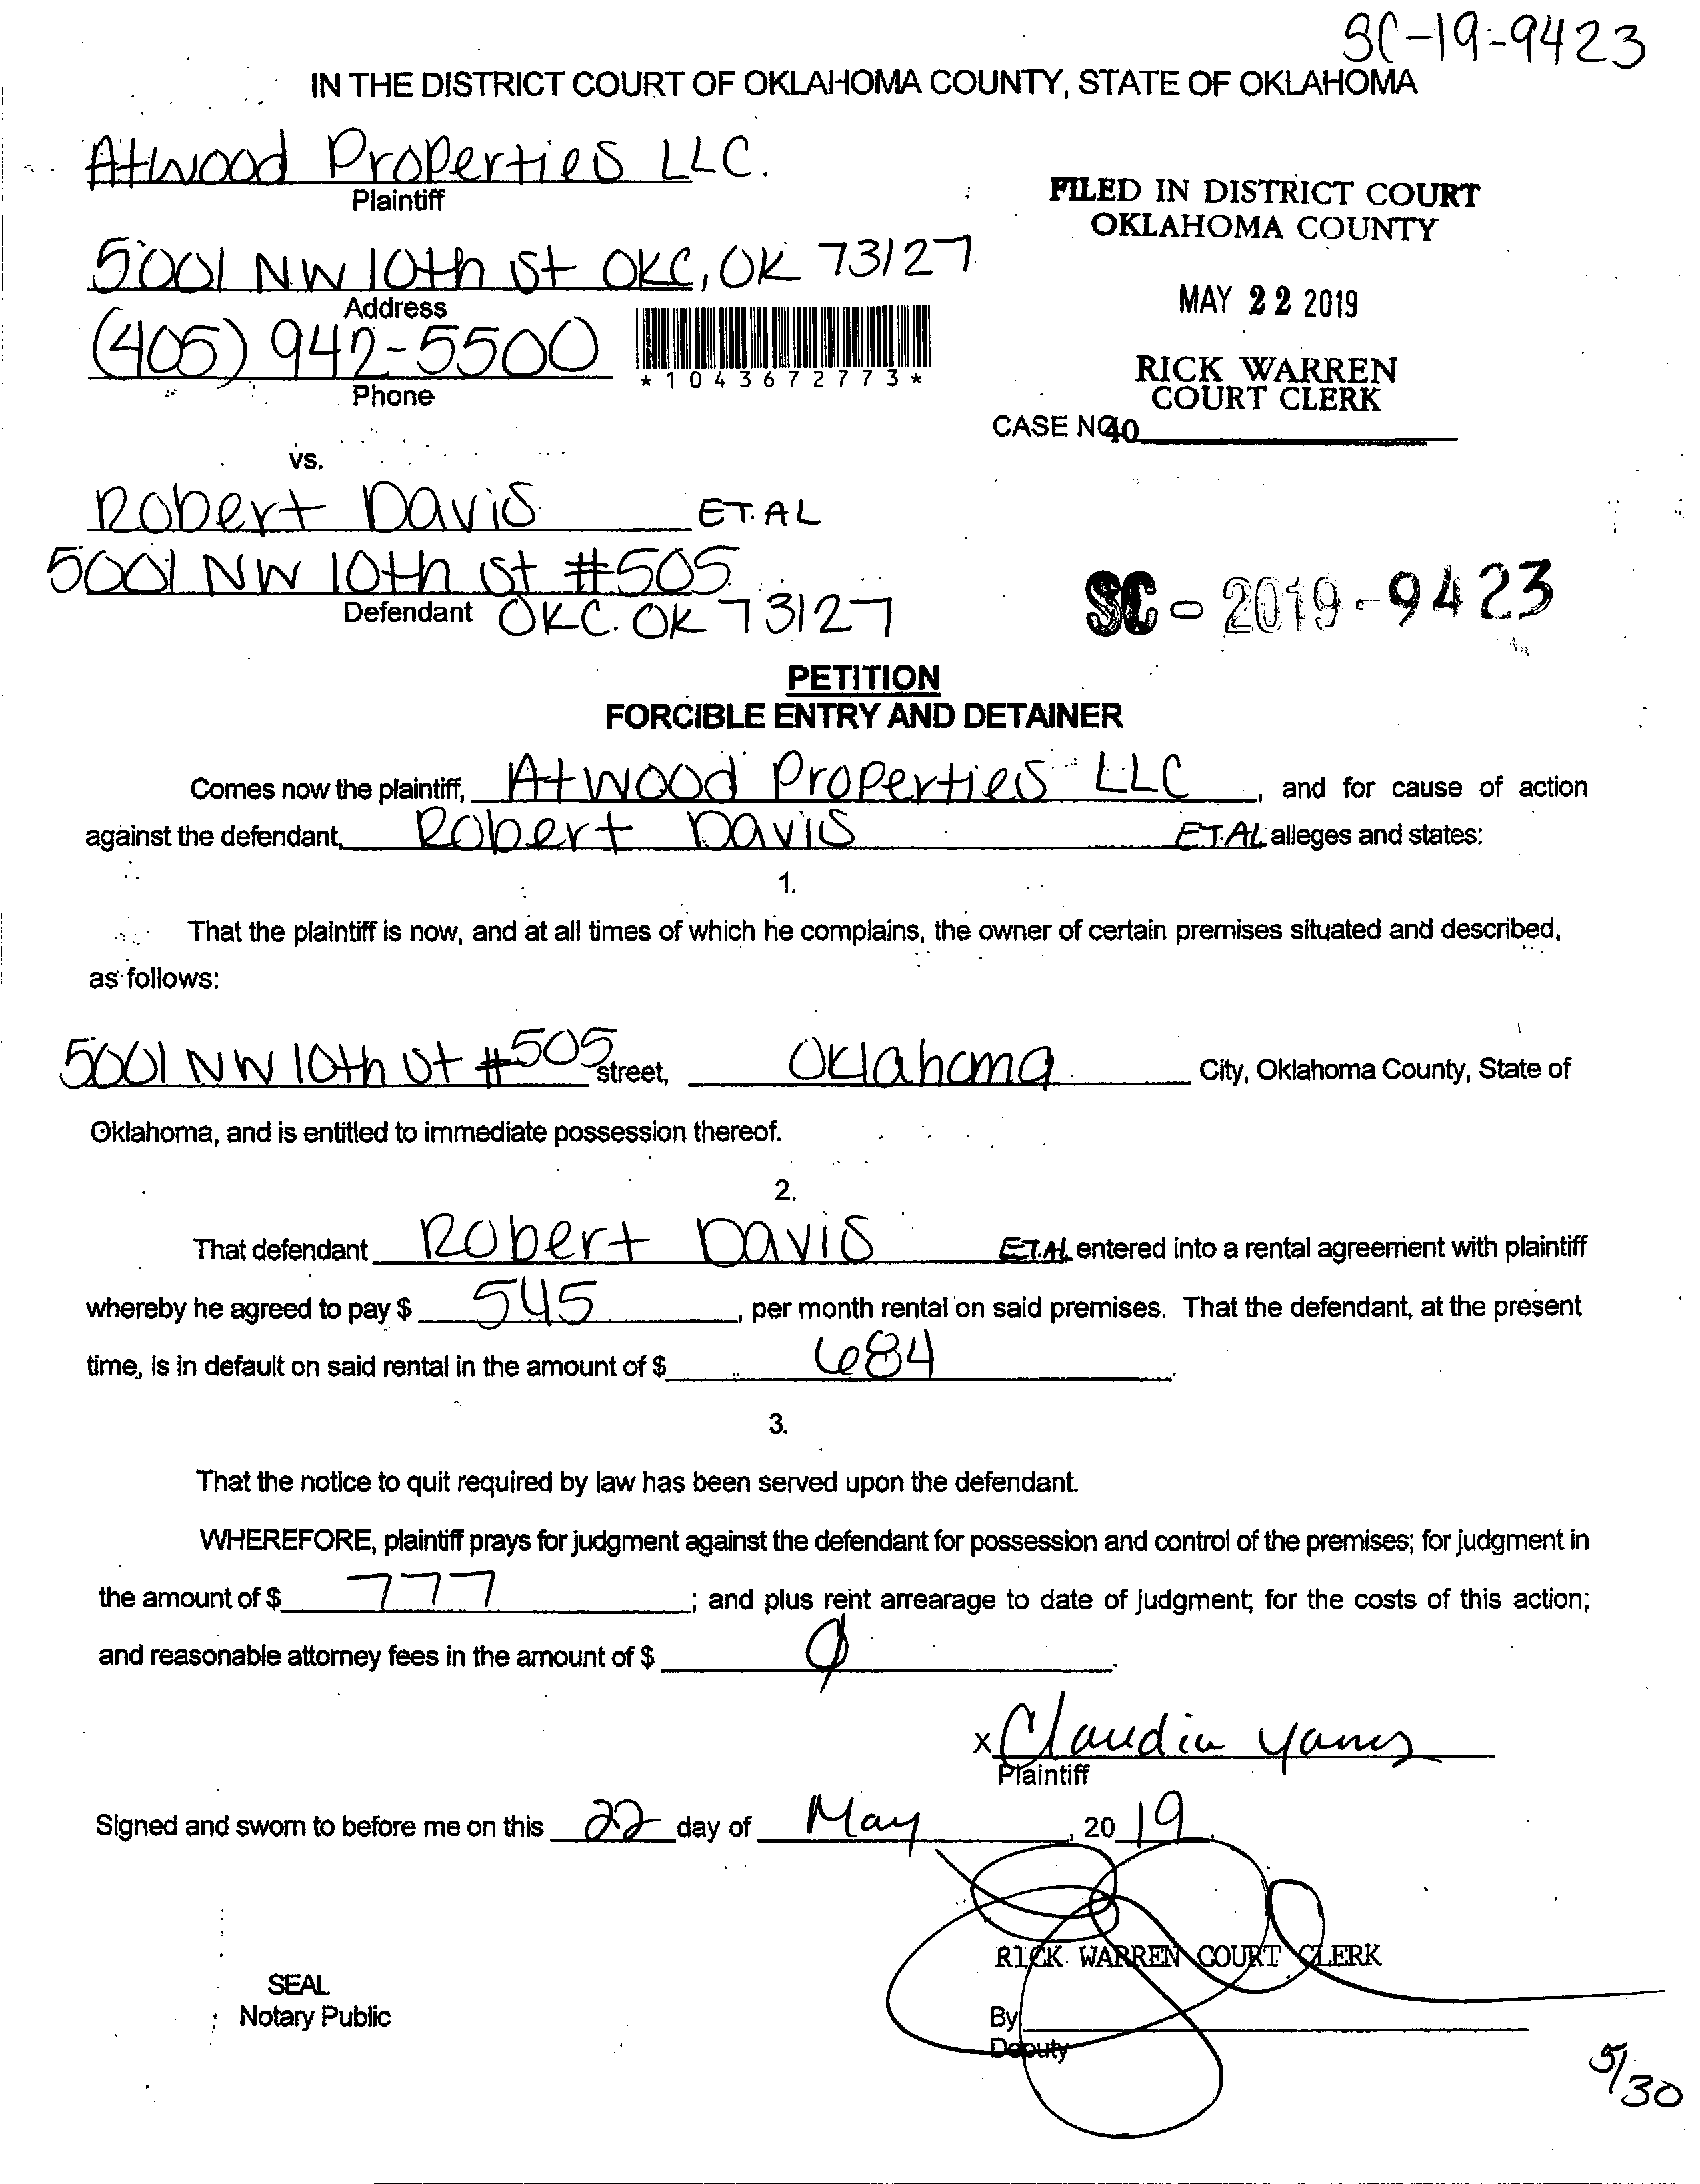 SC-19-9423
IN THE DISTRICT COURT OF OKLAHOMA COUNTY, STATE OF OKLAHOMA
Atwood Properties LLC.
Plaintiff
FILED IN DISTRICT COURT
OKLAHOMA COUNTY
5001 NW 10th St OKC, OK 73127
Address
MAY 22 2019
(405) 942-5500
Phone
*1043672773*
RICK WARREN
COURT CLERK
CASE NO
40
vs.
Robert Davis ET.AL
5001 NW 10th St #505
Defendant OKC. OK 73127
SC-2019-9423
PETITION
FORCIBLE ENTRY AND DETAINER
Comes now the plaintiff, Atwood Properties LLC, and for cause of action
against the defendant, Robert Davis ET.AL alleges and states:
1.
That the plaintiff is now, and at all times of which he complains, the owner of certain premises situated and described,
as follows:
5001 NW 10th St #505 street, Oklahoma City, Oklahoma County, State of
Oklahoma, and is entitled to immediate possession thereof.
2.
That defendant Robert Davis ET.AL entered into a rental agreement with plaintiff
whereby he agreed to pay $ 545, per month rental on said premises. That the defendant, at the present
time, is in default on said rental in the amount of $ 684
3.
That the notice to quit required by law has been served upon the defendant.
WHEREFORE, plaintiff prays for judgment against the defendant for possession and control of the premises; for judgment in
the amount of $ 777; and plus rent arrearage to date of judgment; for the costs of this action;
and reasonable attorney fees in the amount of $ 0
x Claudia
Plaintiff
Signed and sworn to before me on this 22 day of May, 2019.
RICK WARREN COURT CLERK
SEAL
Notary Public
By
Deputy
5/30